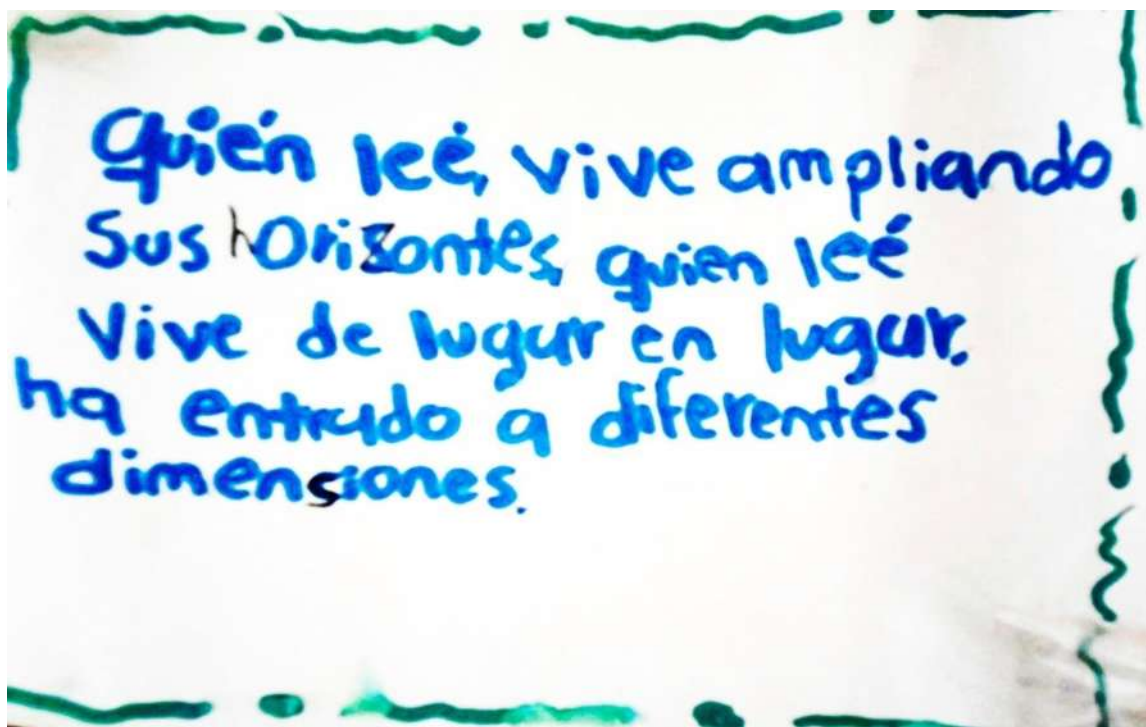 Quién leé, vive ampliando
Sus horizontes, quien leé
Vive de lugar en lugar.
ha entrado a diferentes
dimensiones.